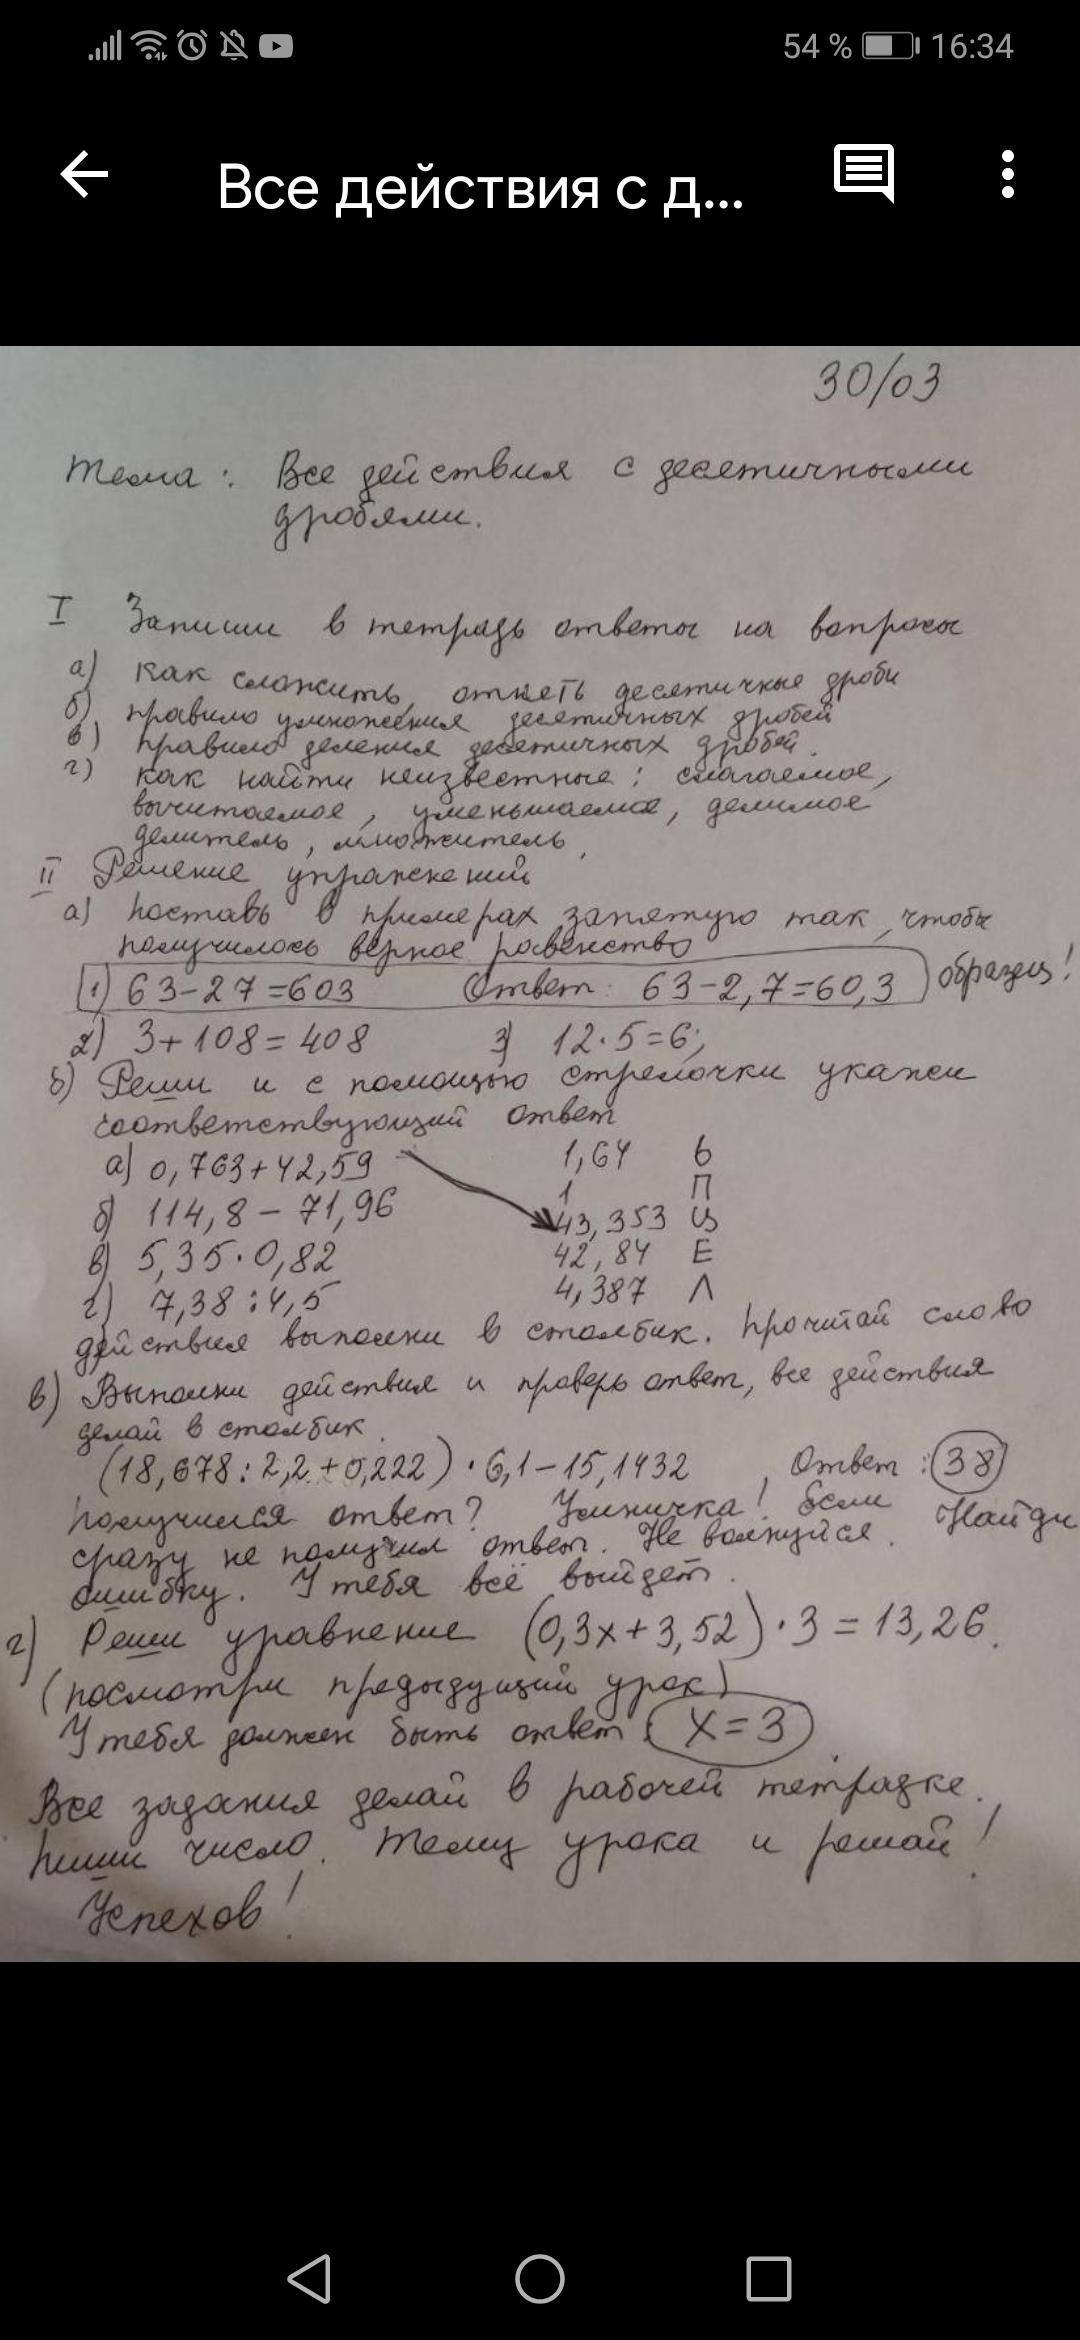 54 % 16:34
Все действия с д...
30/03
Тема: Все действия с десетичными
дробями.
I Запиши в тетрадь ответы на вопросы
а) как сложить, отнеть десетичные дроби
б) правило умножения десетичных дробей
в) правило деления десетичных дробей.
г) как найти неизвестные: слагаемое,
вычитаемое, уменьшаемое, делимое
делитель, множитель,
II Решение упражнений
а) поставь в примерах запятую так, чтобы
получилось верное равенство
1) 63-27=603 Ответ: 63-2,7=60,3 образец!
2) 3+108=408 3) 12·5=6;
б) Реши и с помощью стрелочки укажи
соответствующий ответ
а) 0,763+42,59 1,64 Ь
1 П
б) 114,8-71,96 43,353 Ц
в) 5,35·0,82 42,84 Е
г) 7,38:4,5 4,387 Л
действия выполни в столбик. Прочитай слово
в) Выполни действия и проверь ответ, все действия
делай в столбик.
(18,678:2,2+0,222)·6,1-15,1432, Ответ: 38
Получился ответ? Умничка! Если
сразу не получил ответ. Не волнуйся. Найди
ошибку. У тебя всё выйдет.
г) Реши уравнение (0,3х+3,52)·3=13,26.
(посмотри предыдущий урок)
У тебя должен быть ответ: х=3.
Все задания делай в рабочей тетрадке.
Пиши число. Тему урока и решай!
Успехов!